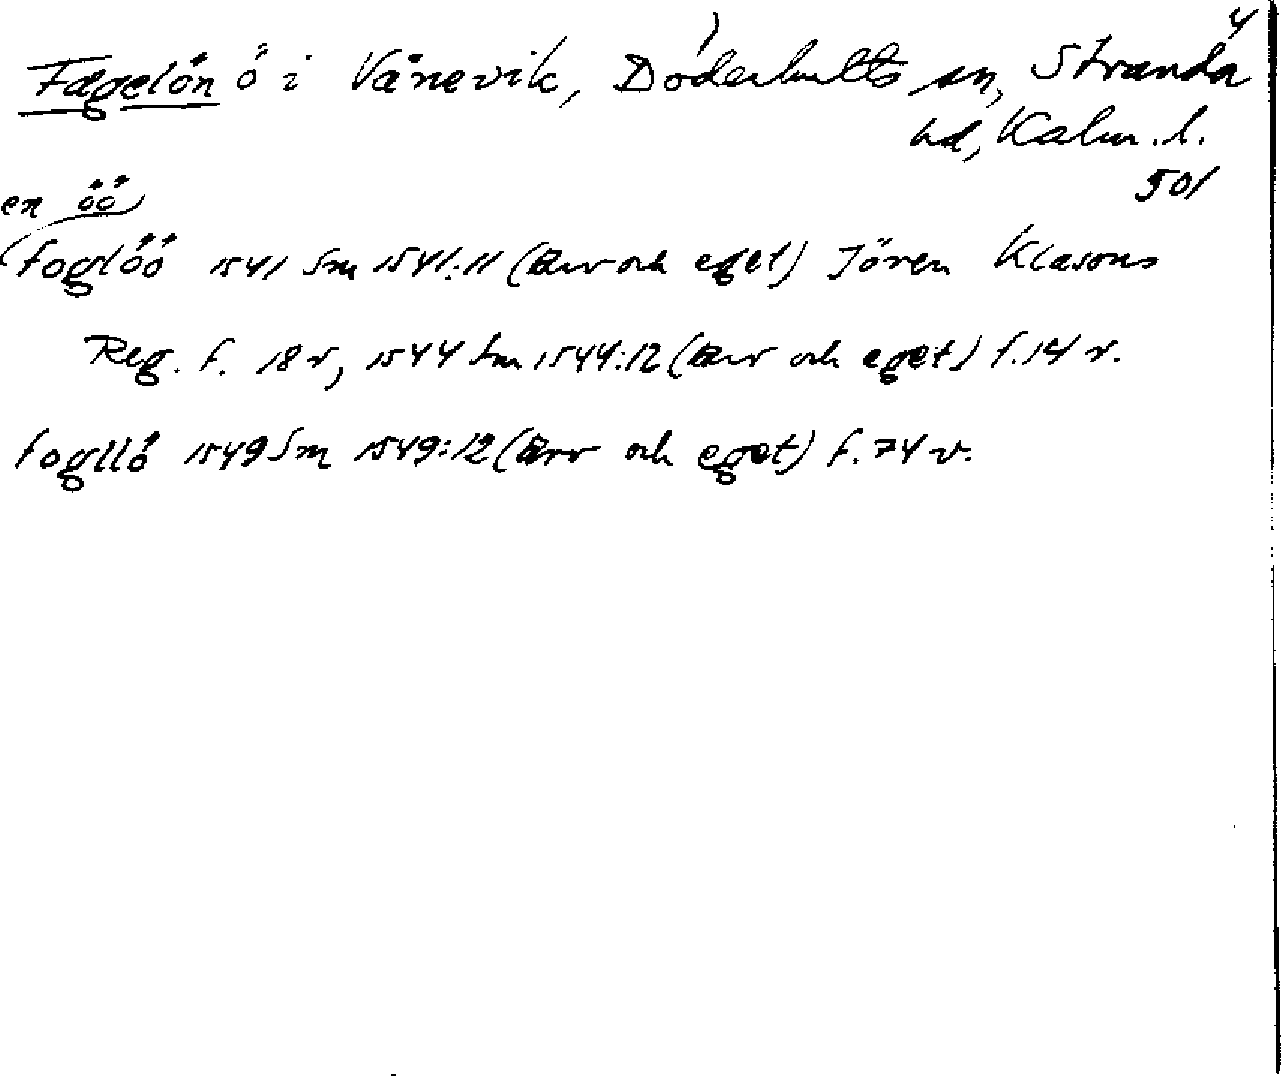 4
Fågelön ö i Vånevik, Döderhults sn, Stranda
hd, Kalm. l.
501
en öö
foglöö 1541 Sm 1541:11 (Arv och eget) Jören Klasons
Reg. f. 18 v, 1544 Sm 1544:12 (Arv och eget) f. 14 v.
fogllö 1549 Sm 1549:12 (Arv och eget) f. 74 v.